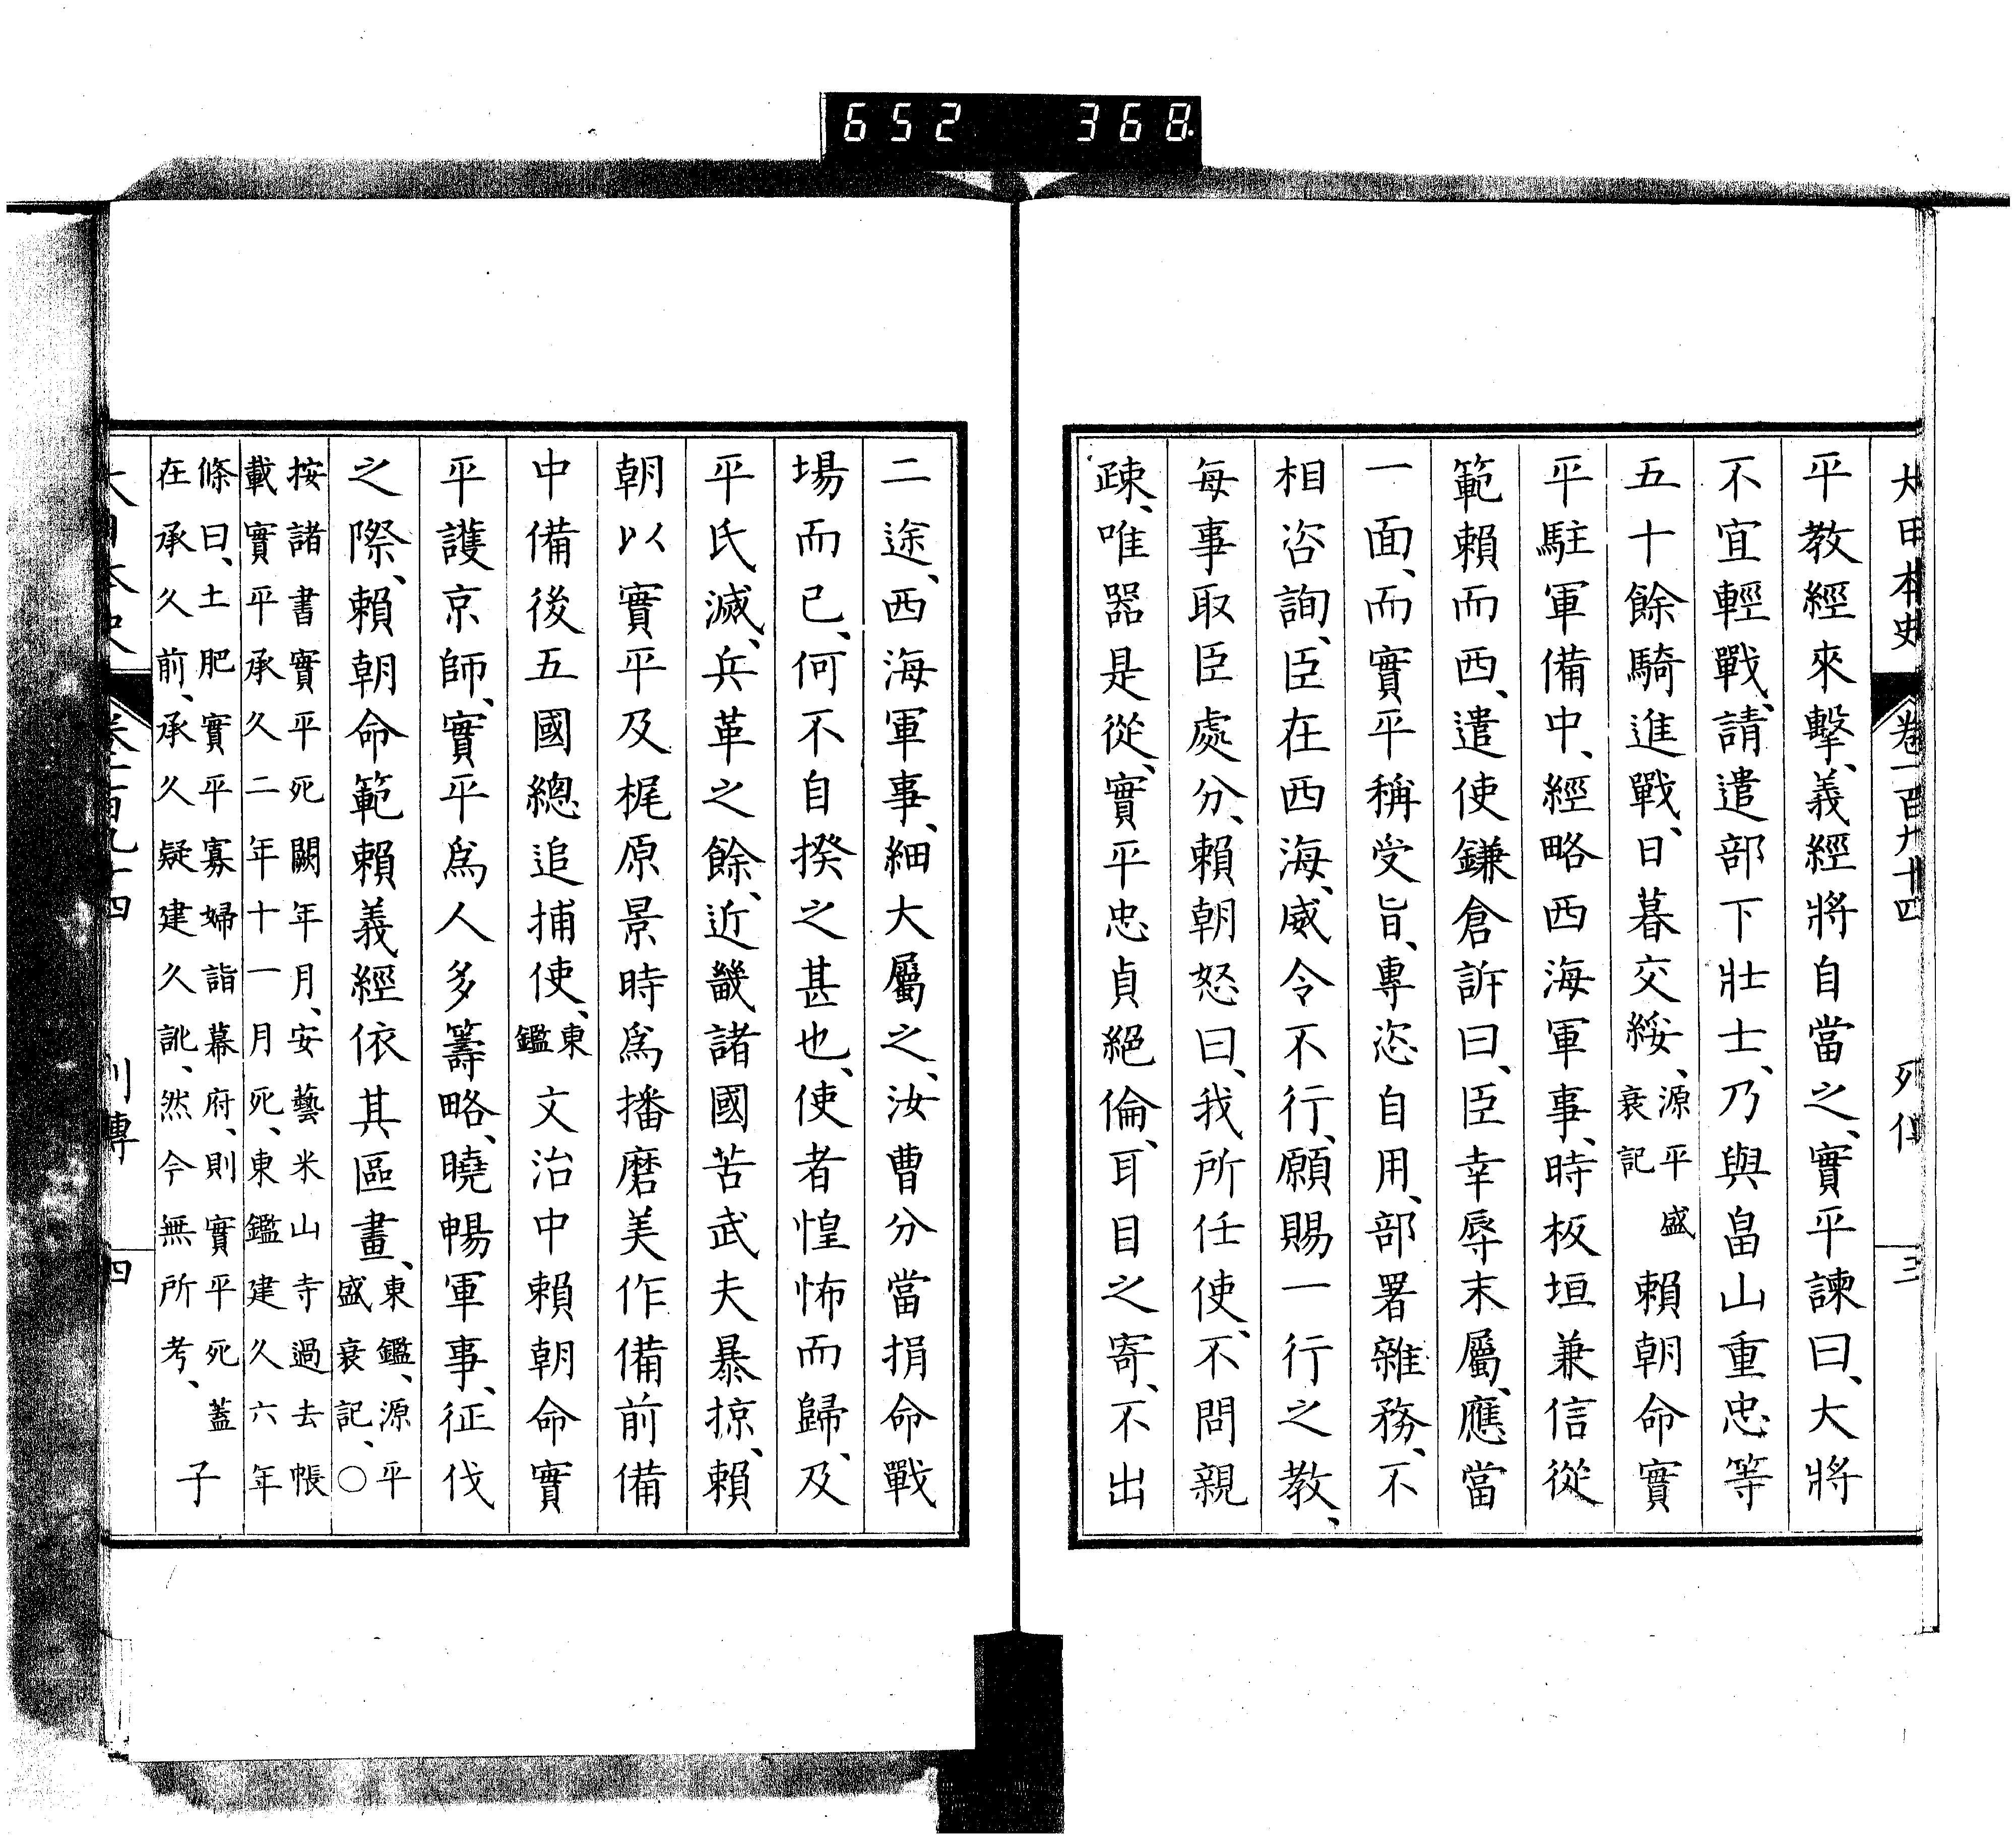 652 368
大日本史 卷一百九十四 列傳 三
平教經來擊、義經將自當之、實平諫曰、大將
不宜輕戰、請遣部下壯士、乃與畠山重忠等
五十餘騎進戰、日暮交綏、源平盛衰記賴朝命實
平駐軍備中、經略西海軍事、時板垣兼信從
範賴而西、遣使鎌倉訴曰、臣幸辱末屬、應當
一面、而實平稱受旨、專恣自用、部署雜務、不
相咨詢、臣在西海、威令不行、願賜一行之教、
每事取臣處分、賴朝怒曰、我所任使、不問親
疎、唯器是從、實平忠貞絕倫、耳目之寄、不出
二途、西海軍事、細大屬之、汝曹分當捐命戰
場而已、何不自揆之甚也、使者惶怖而歸、及
平氏滅、兵革之餘、近畿諸國苦武夫暴掠、賴
朝以實平及梶原景時爲播磨美作備前備
中備後五國總追捕使、東鑑文治中賴朝命實
平護京師、實平爲人多籌略、曉暢軍事、征伐
之際、賴朝命範賴義經依其區畫、東鑑、源平盛衰記、○
按諸書實平死闕年月、安藝米山寺過去帳
載實平承久二年十一月死、東鑑建久六年
條曰、土肥實平寡婦詣幕府、則實平死蓋
在承久前、承久疑建久訛、然今無所考、子
大日本史 卷一百九十四 列傳 四